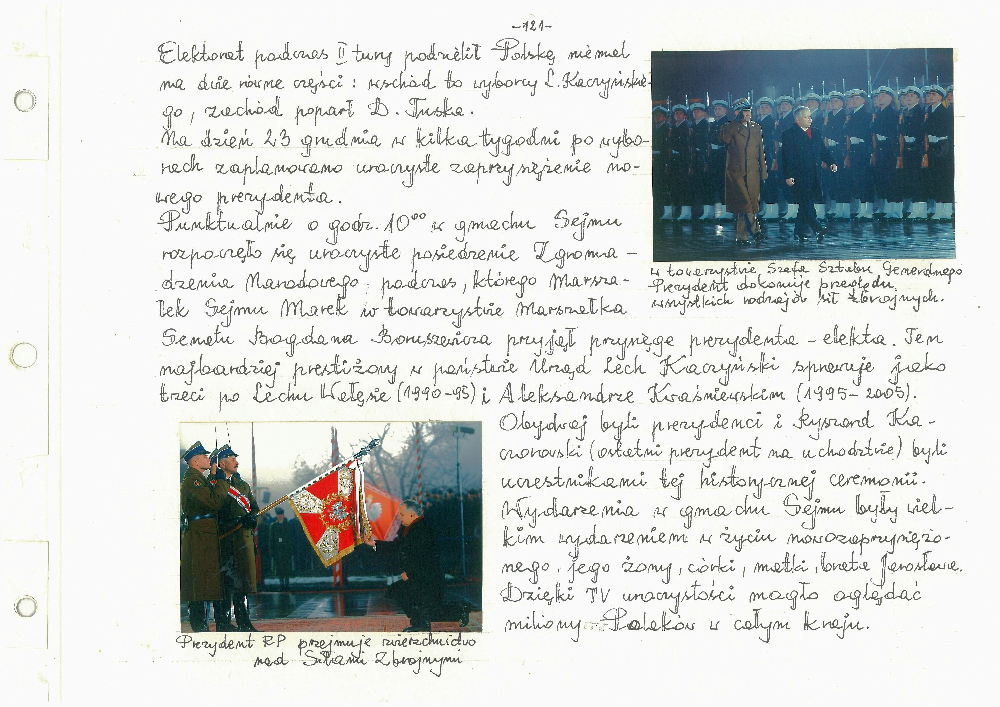 -121-
Elektorat podczas II tury podzielił Polskę niemal
na dwie równe części: wschód to wyborcy L. Kaczyńskie-
go, zachód poparł D. Tuska.
Na dzień 23 grudnia w kilka tygodni po wybo-
rach zaplanowano uroczyste zaprzysężenie no-
wego prezydenta.
Punktualnie o godz. 10⁰⁰ w gmachu Sejmu
rozpoczęło się uroczyste posiedzenie Zgroma-
dzenia Narodowego podczas, którego Marsza-
łek Sejmu Marek w towarzystwie Marszałka
Senatu Bogdana Borusewicza przyjął przysięgę prezydenta-elekta. Ten
najbardziej prestiżowy w państwie Urząd Lech Kaczyński sprawuje jako
trzeci po Lechu Wałęsie (1990-95) i Aleksandrze Kwaśniewskim (1995-2005).
Obydwaj byli prezydenci i Ryszard Ka-
czorowski (ostatni prezydent na uchodztwie) byli
uczestnikami tej historycznej ceremonii.
Wydarzenia w gmachu Sejmu były wiel-
kim wydarzeniem w życiu nowozaprzysiężo-
nego, jego żony, córki, matki, brata Jarosława.
Dzięki TV uroczystości mogło oglądać
miliony Polaków w całym kraju.
w towarzystwie Szefa Sztabu Generalnego
Prezydent dokonuje przeglądu
wszystkich rodzajów sił zbrojnych.
Prezydent RP przejmuje zwierzchnictwo
nad Siłami Zbrojnymi